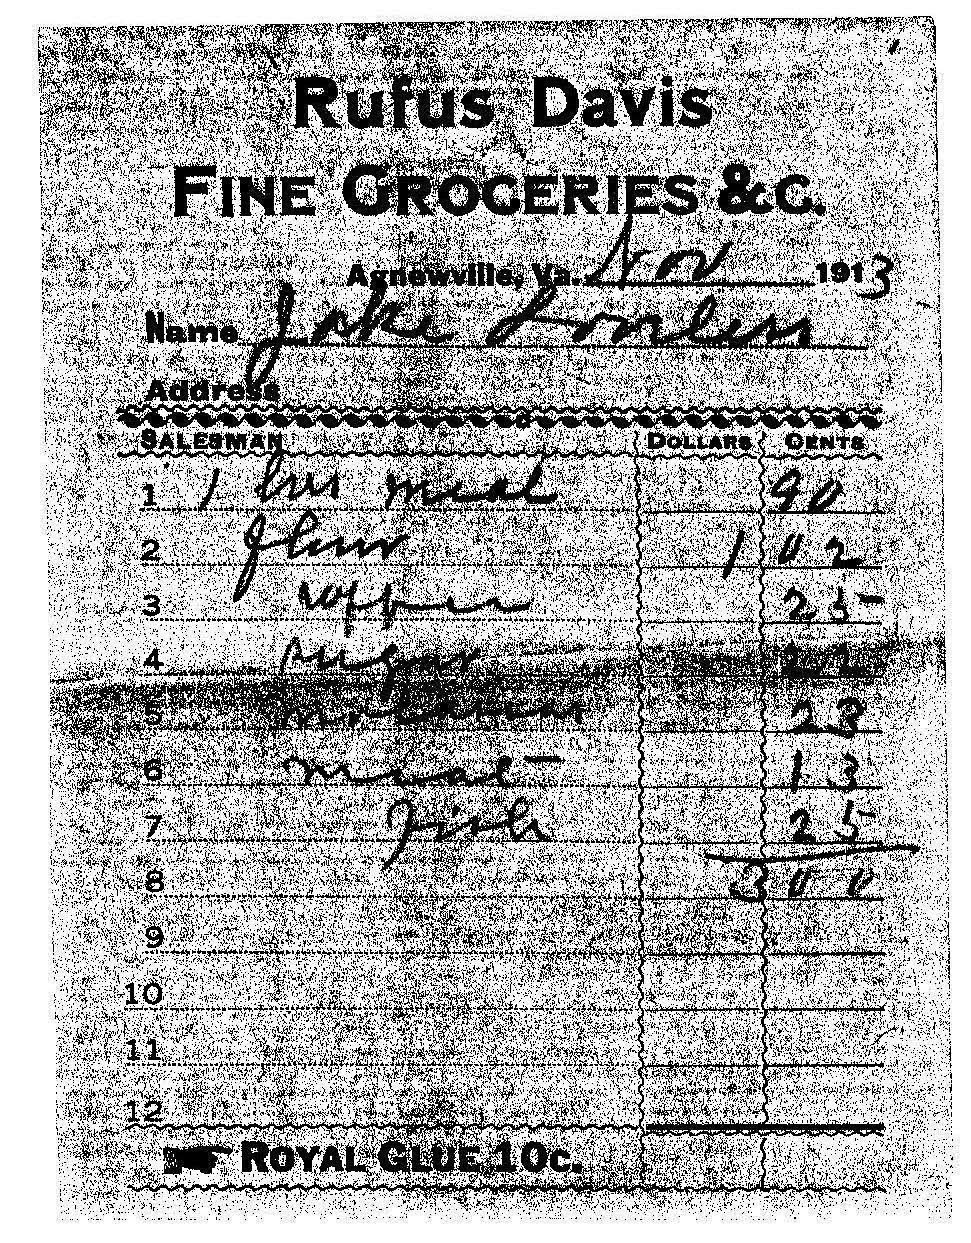 Rufus Davis
FINE GROCERIES &C.
Agnewville, Va. Nov 1913
Name Jake
Address
SALESMAN DOLLARS CENTS
1 1 bus meal 90
2 flour 1 02
3 coffee 25
4 sugar 22
5 molasses 23
6 meat 13
7 Fish 25
8 3 00
9
10
11
12
ROYAL GLUE 10c.